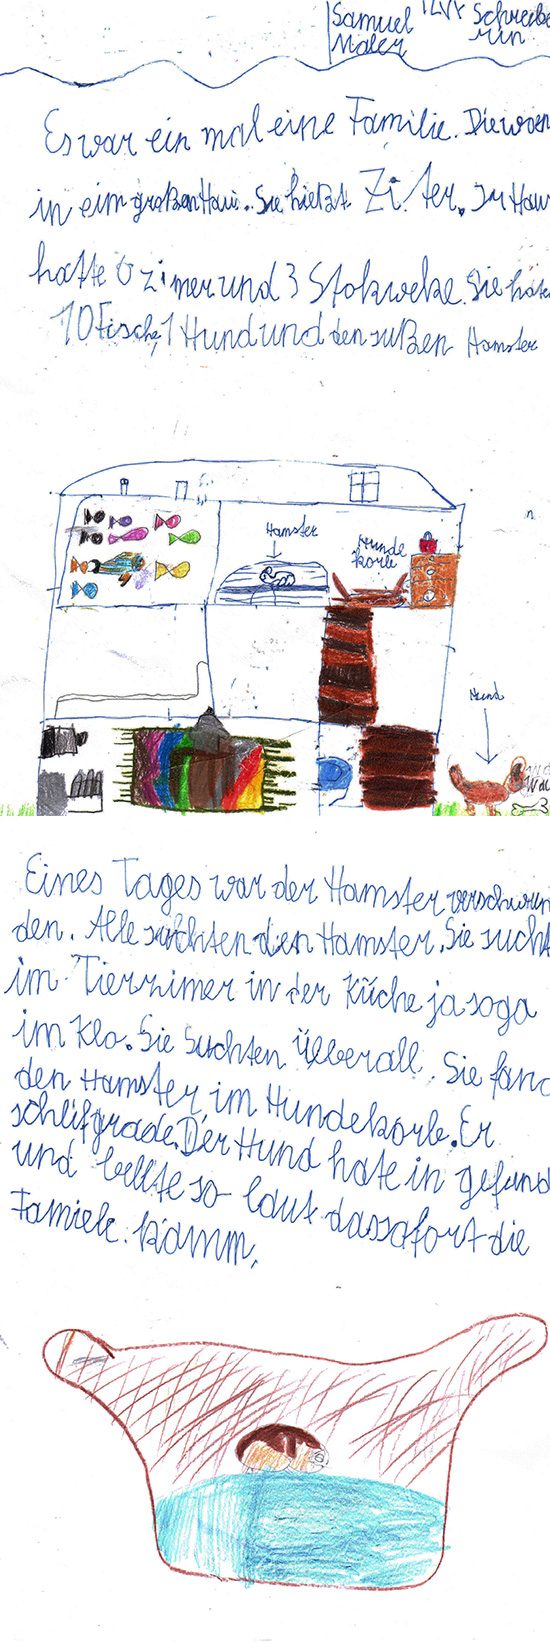 Samuel Schreibe
Maler rin
Es war ein mal eine Familie. Die won
in eim großen Haus. Sie hießt Zi. ter. Im Hau
hatte 6 zimer und 3 Stokweke. Sie hate
10 Fische, 1 Hund und den süßen Hamster
Hamster
Hunde
korb
Hund
Eines Tages war der Hamster verschwun
den. Alle suchten den Hamster. Sie sucht
im Tierzimer in der Küche ja soga
im Klo. Sie Suchten Üllerall. Sie fand
den Hamster im Hundekorb. Er
schlifgrade. Der Hund hate in gefund
und bellte so laut dassofort die
Famiele kamm.